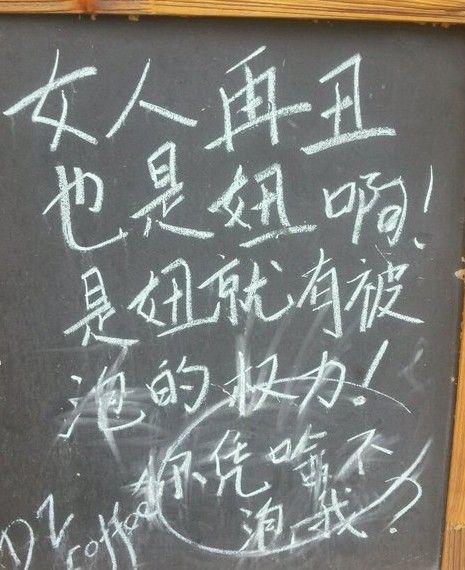 女人再丑
也是妞啊!
是妞就有被
泡的权力!
你凭啥不
泡我?
DZ coffee